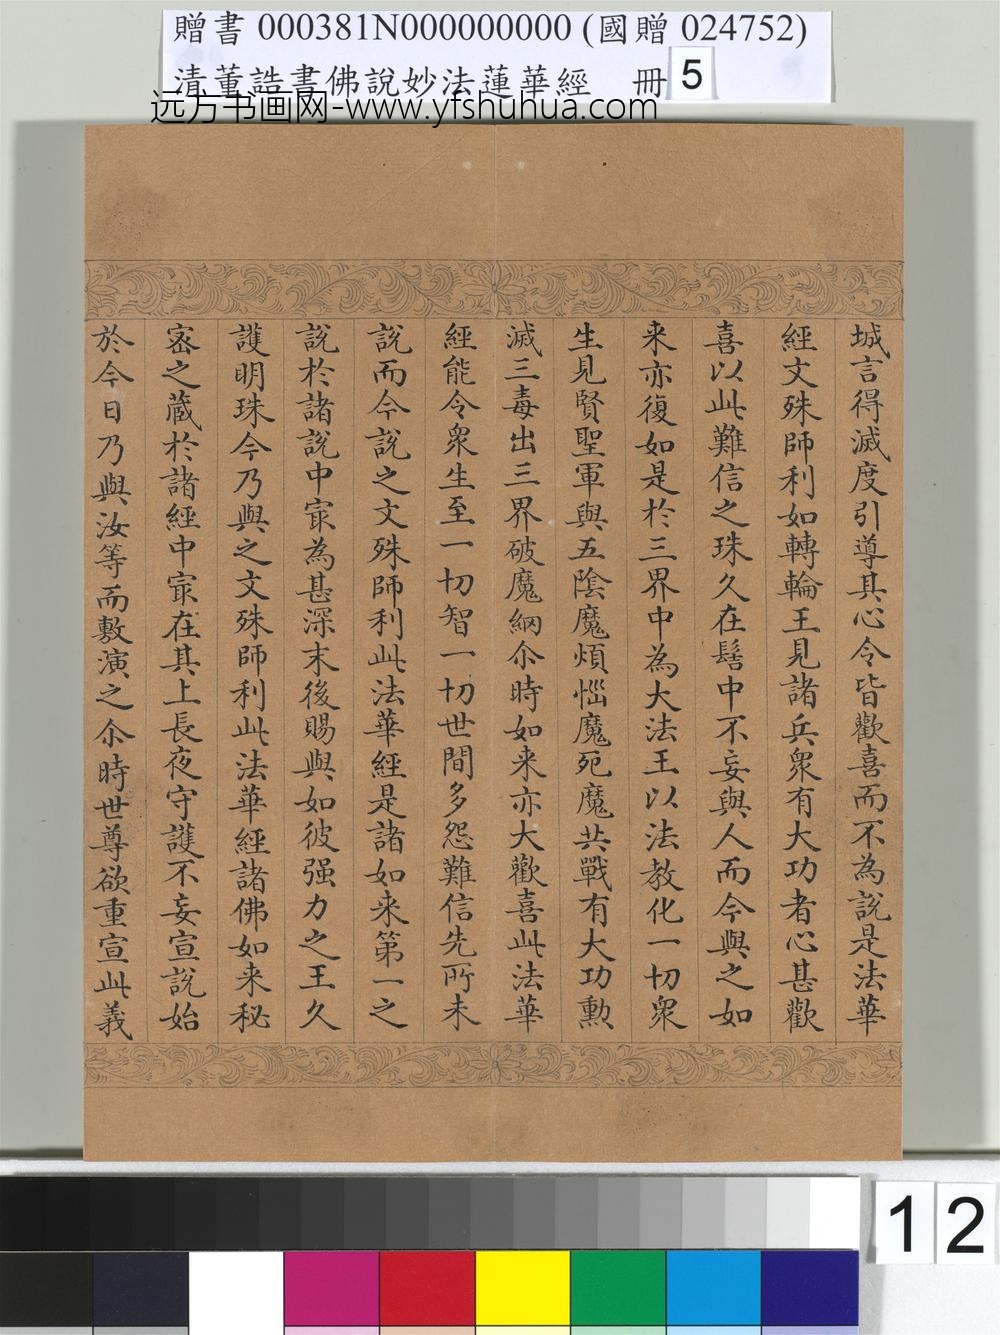 贈書 000381N000000000 (國贈 024752)
清董誥書佛說妙法蓮華經 冊 5
远方书画网-www.yfshuhua.com
城言得滅度引導其心令皆歡喜而不為說是法華
經文殊師利如轉輪王見諸兵衆有大功者心甚歡
喜以此難信之珠久在髻中不妄與人而今與之如
来亦復如是於三界中為大法王以法教化一切衆
生見賢聖軍與五陰魔煩惱魔死魔共戰有大功勲
滅三毒出三界破魔網尒時如来亦大歡喜此法華
經能令衆生至一切智一切世間多怨難信先所未
說而今說之文殊師利此法華經是諸如来第一之
說於諸說中㝡為甚深末後賜與如彼强力之王久
護明珠今乃與之文殊師利此法華經諸佛如来秘
密之蔵於諸經中㝡在其上長夜守護不妄宣說始
於今日乃與汝等而敷演之尒時世尊欲重宣此義
12